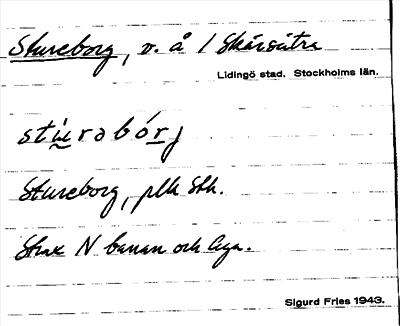 Stureborg, v. å 1 Skärsätra
Lidingö stad. Stockholms län.
stu̇rabórj
Stureborg, plk Sth.
Strax N banan och Aga.
Sigurd Fries 1943.